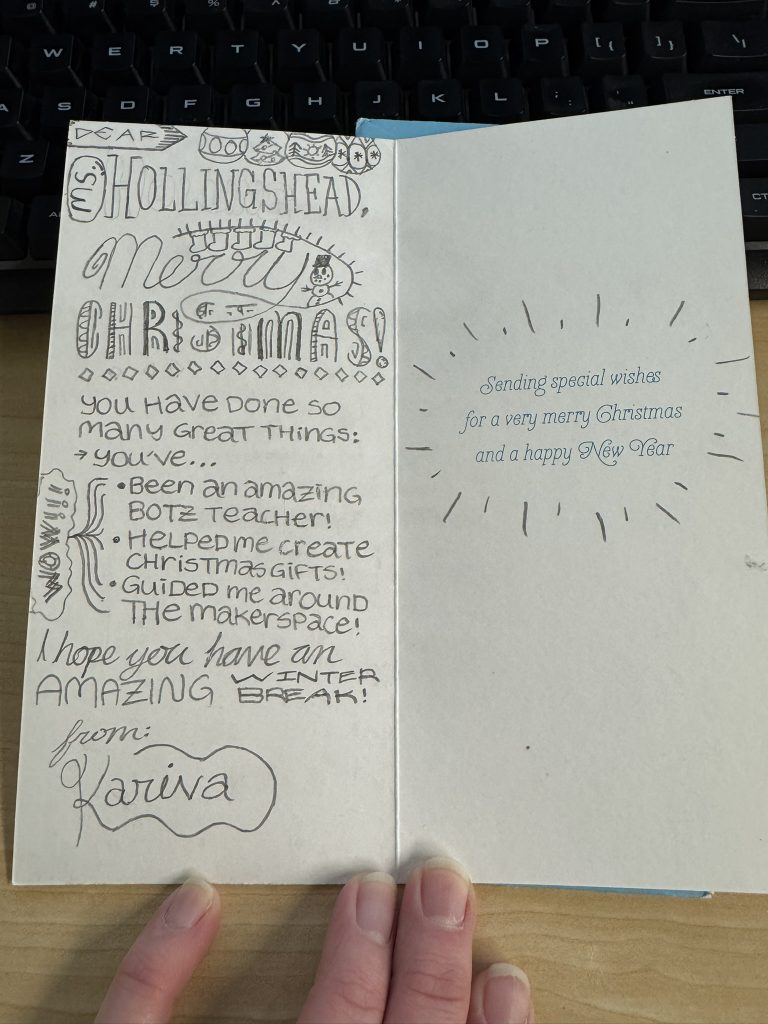 W E R T Y U I O P [ { ] } \ |
A S D F G H J K L ; : ' " ENTER
Z
DEAR
Ms. HOLLINGSHEAD,
Merry
CHRISTMAS!
YOU HAVE DONE SO
MANY GREAT THINGS:
→ YOU'VE...
WOW!!!!
• BEEN AN AMAZING
BOTZ TEACHER!
• HELPED ME CREATE
CHRISTMAS GIFTS!
• GUIDED ME AROUND
THE MAKERSPACE!
I hope you have an
AMAZING WINTER
BREAK!
from:
Kariva
Sending special wishes
for a very merry Christmas
and a happy New Year